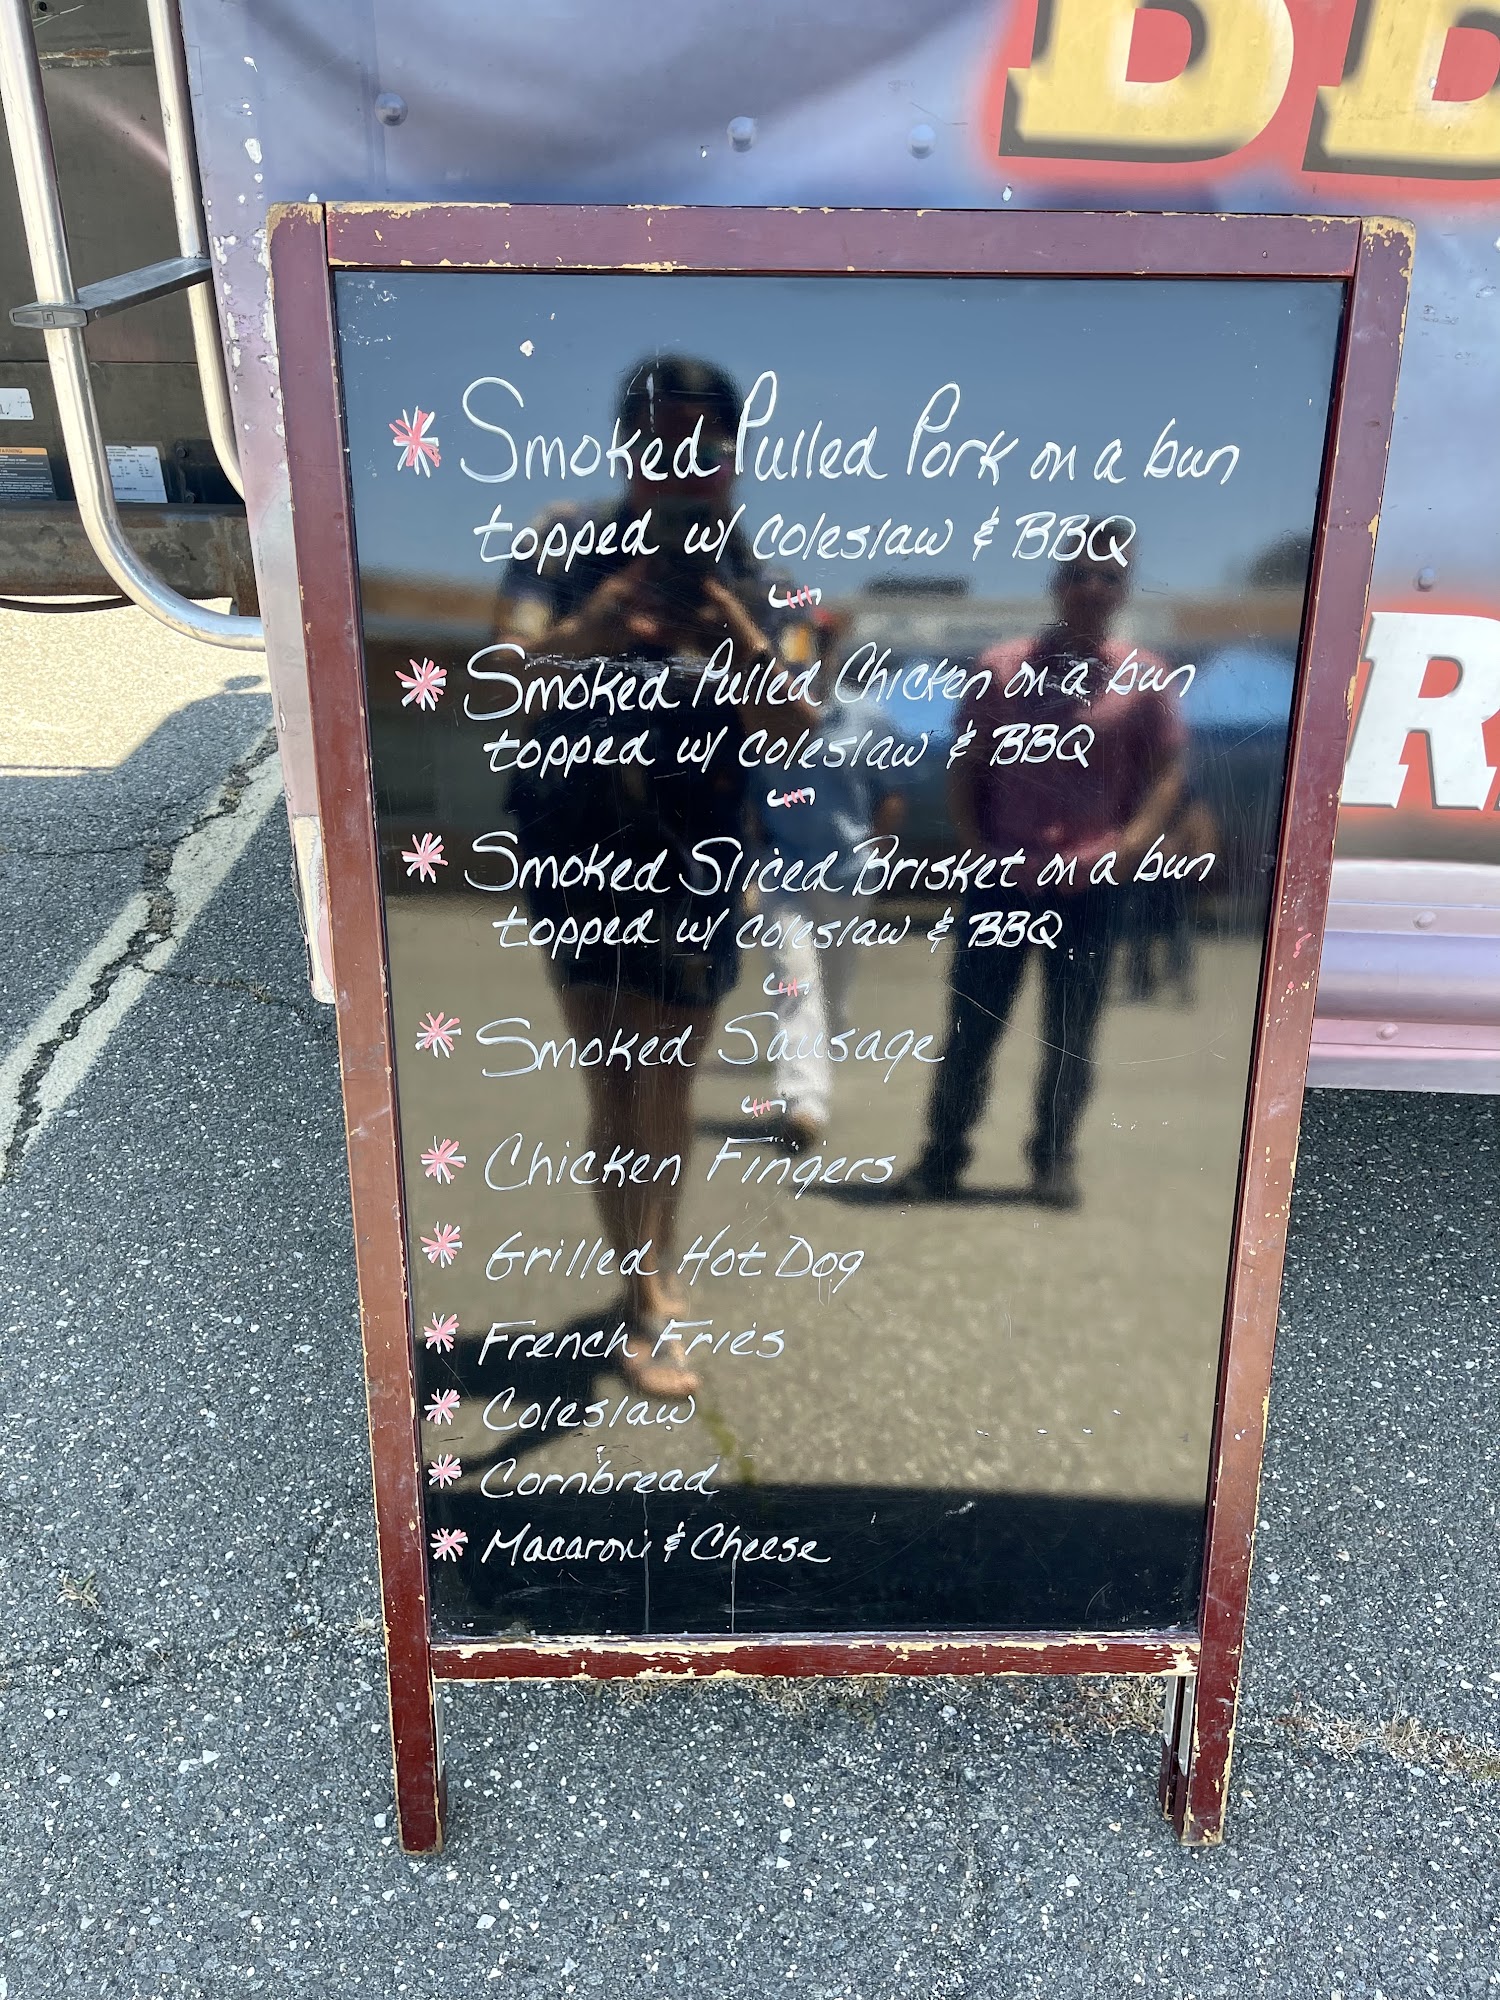 BB
* Smoked Pulled Pork on a bun
topped w/ Coleslaw & BBQ
* Smoked Pulled Chicken on a bun
topped w/ Coleslaw & BBQ
R
* Smoked Sliced Brisket on a bun
topped w/ Coleslaw & BBQ
* Smoked Sausage
* Chicken Fingers
* Grilled Hot Dog
* French Fries
* Coleslaw
* Cornbread
* Macaroni & Cheese